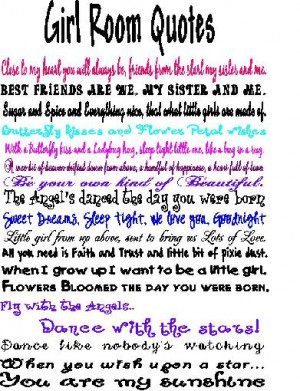 Girl Room Quotes
Close to my heart you will always be, friends from the start my sister and me.
BEST FRIENDS ARE WE, MY SISTER AND ME.
Sugar and Spice and Everything nice, that what little girls are made of.
Butterfly kisses and Flower Petal wishes
With a Butterfly kiss and a Ladybug hug, sleep tight little one, like a bug in a rug.
A wee bit of heaven drifted down from above, a handful of happiness, a heart full of love
Be your own kind of Beautiful.
The Angel's danced the day you were born
Sweet Dreams, Sleep Tight, We love you, Goodnight
Little girl from up above, sent to bring us Lots of Love.
All you need is Faith and Trust and little bit of pixie dust.
When I grow up I want to be a little girl.
FLOWERS BLOOMED THE DAY YOU WERE BORN.
Fly with the Angels..
Dance with the stars!
Dance like nobody's watching
When you wish upon a star...
You are my sunshine